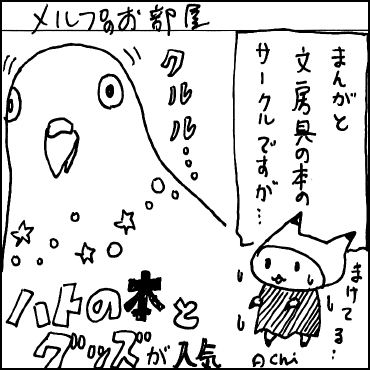 メルプのお部屋
まんがと
文房具の本の
サークルですが…
クルル…
まけてる…
ハトの本と
グッズが人気
achi